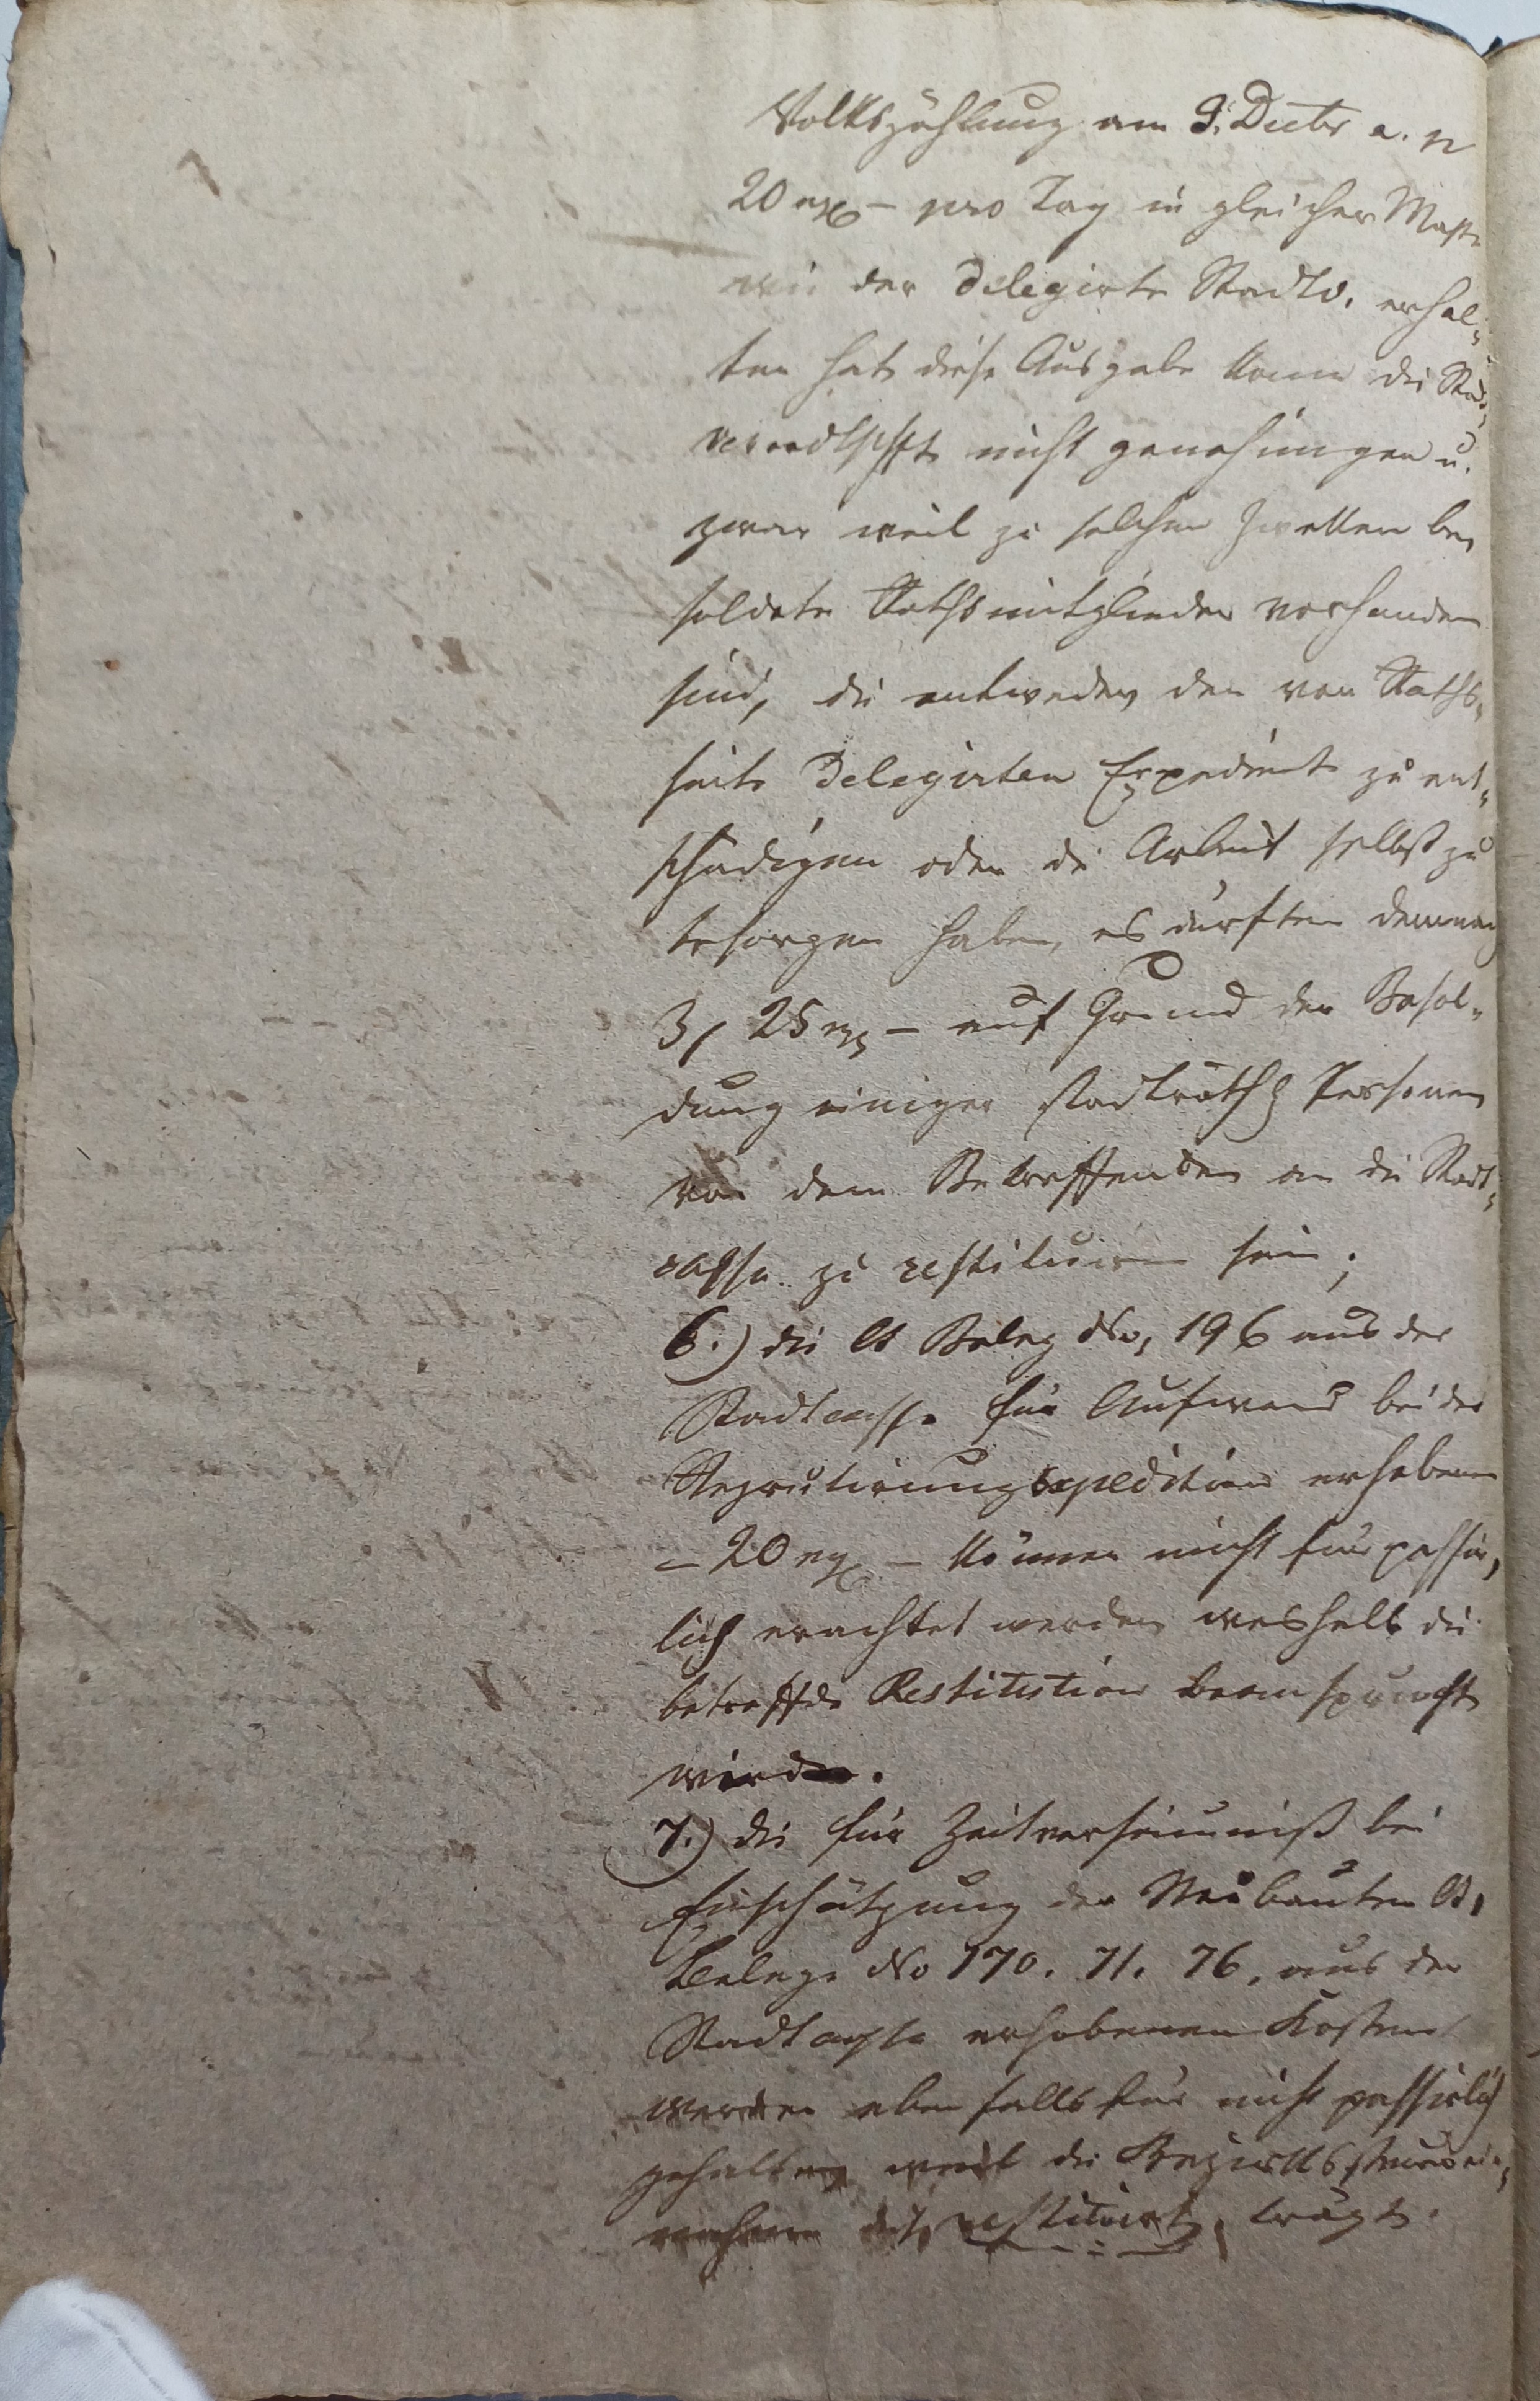 Volkszählung am 9. Decbr a. p
20 ngr – pro Tag in gleicher Maße
wie der delegirte Stadtv. erhal-
ten hat, diese Ausgabe kann die Stadt-
verordtschft nicht genehmigen u.
zwar weil zu solchen Zwekken be
soldete Rathsmitglieder vorhanden
sind, die entweder den von Raths-
seite delegirten Expedient zu ent-
schädigen oder die Arbeit selbst zu
besorgen haben, es dürften demnach
3, 25 ngr – auf Grund der Besol-
dung einiger stadträthl Personen
von dem Betreffenden an die Stadt-
casse zu restituiren sein;
6.) die lt Beleg No, 196 aus der
Stadtcasse für Aufwand bei der
Rekrutirungsexpedition erhobenen
– 20 ngr – können nicht für passir-
lich erachtet werden weshalb die
betreffde Restitution beansprucht
wird.
7.) die für Zeitversäumniß bei
Einschätzung der Neubauten lt,
Belege No 170. 71. 76. aus der
Stadtcasse erhobenen Kosten
werden ebenfalls für nicht passirlich
gehalten weil die Bezirkssteuerein-
nahme restituirt,